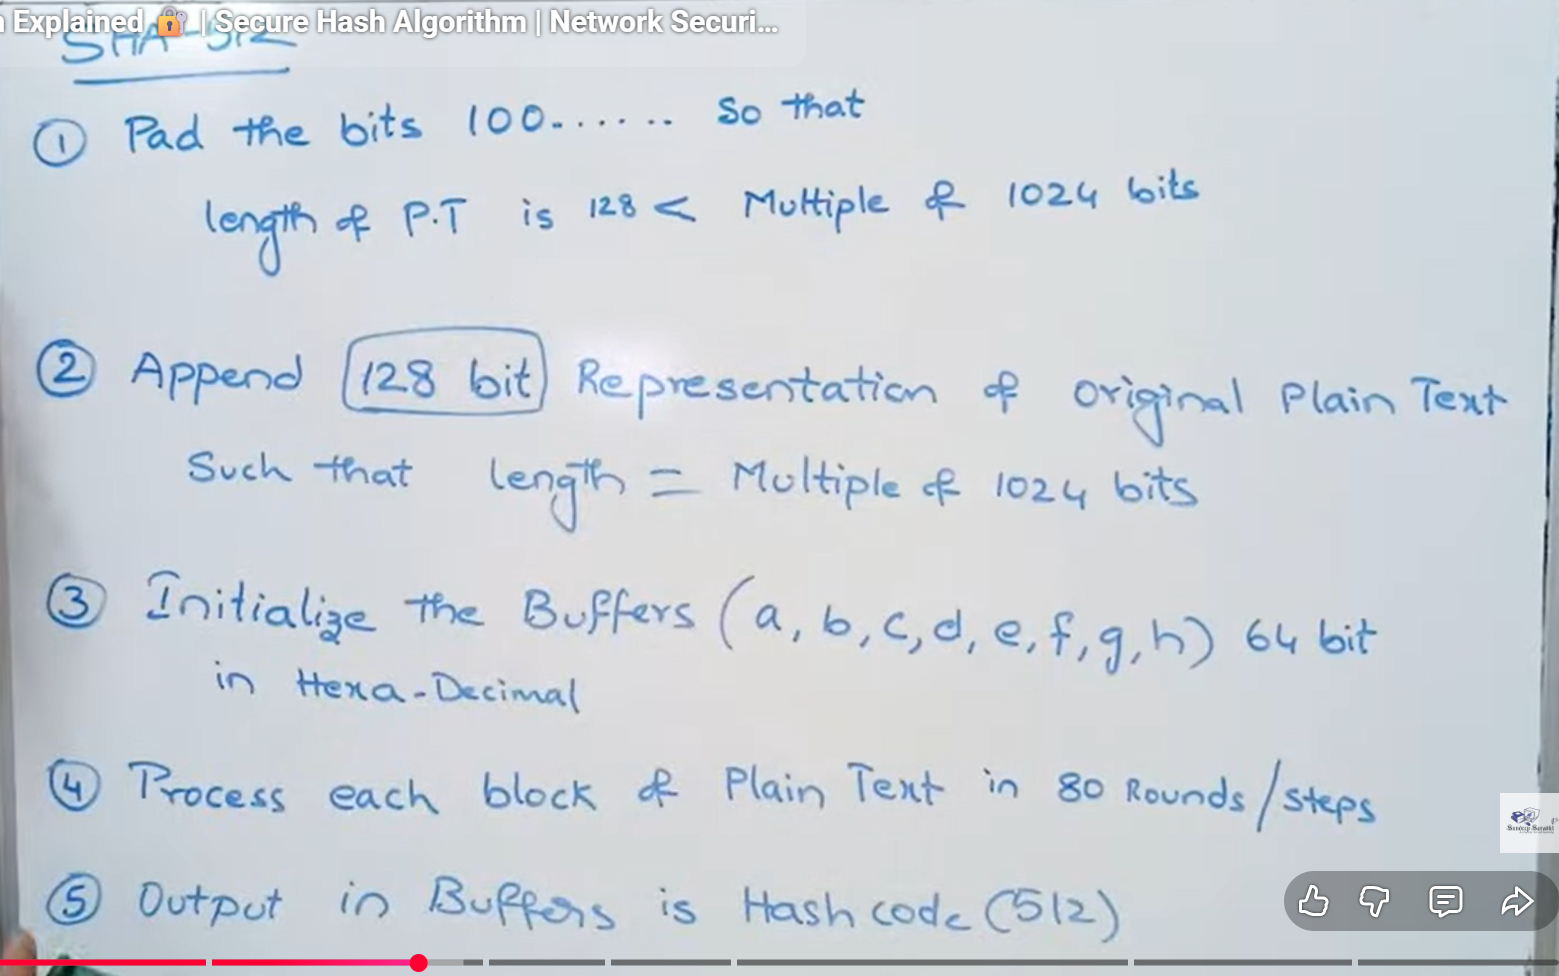 Explained 🔐 | Secure Hash Algorithm | Network Securi...
SHA-512
① Pad the bits 100....... So that
length of P.T is 128 < Multiple of 1024 bits
② Append 128 bit Representation of original Plain Text
Such that length = Multiple of 1024 bits
③ Initialize the Buffers (a, b, c, d, e, f, g, h) 64 bit
in Hexa-Decimal
④ Process each block of Plain Text in 80 Rounds/steps
⑤ Output in Buffers is Hash code (512)